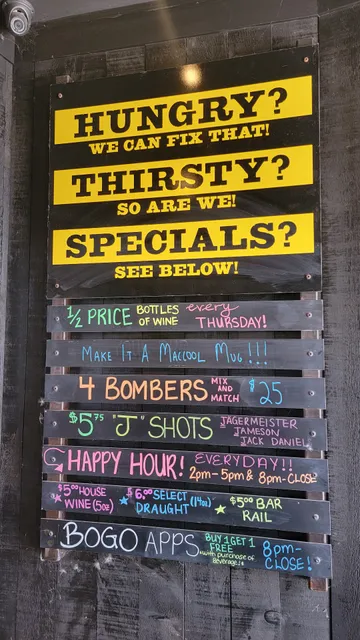 HUNGRY?
WE CAN FIX THAT!
THIRSTY?
SO ARE WE!
SPECIALS?
SEE BELOW!
1/2 PRICE BOTTLES OF WINE every THURSDAY!
MAKE IT A MACCOOL MUG!!!
4 BOMBERS MIX AND MATCH $25
$5.75 "J" SHOTS JAGERMEISTER JAMESON JACK DANIEL
HAPPY HOUR! EVERYDAY!! 2pm-5pm & 8pm-CLOSE
$5.00 HOUSE WINE (5oz) $6.00 SELECT DRAUGHT (14oz) $5.00 BAR RAIL
BOGO APPS BUY 1 GET 1 FREE with purchase of Beverage 8pm-CLOSE!